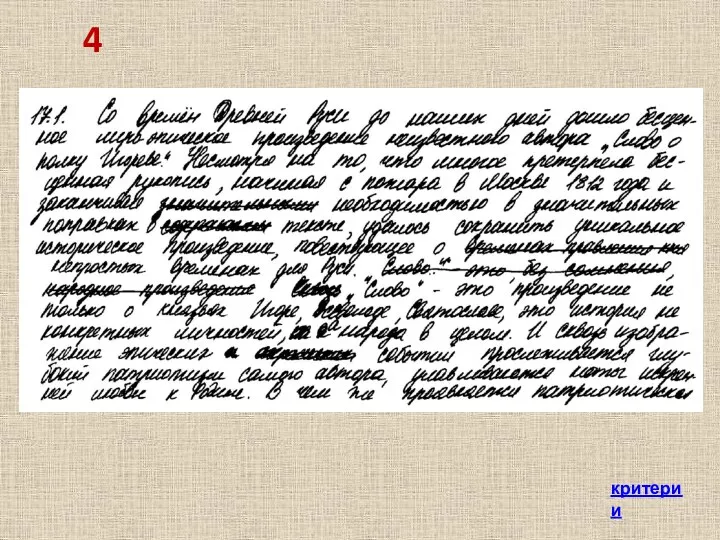 4
17.1. Со времён Древней Руси до наших дней дошло бесцен-
ное лиро-эпическое произведение неизвестного автора „Слово о
полку Игореве." Несмотря на то, что многое претерпела бес-
ценная рукопись, начиная с пожара в Москве 1812 года и
заканчивая необходимостью в значительных
поправках в тексте, удалось сохранить уникальное
историческое произведение, повествующее о
непростых временах для Руси. „Слово..." - это, без сомнения,
народное произведение „Слово" - это произведение не
только о князьях Игоре, Всеволоде, Святославе, это история не
конкретных личностей, а народа в целом. И сквозь изобра-
жение эпических событий прослеживается глу-
бокий патриотизм самого автора, улавливаются ноты искрен-
ней любви к Родине. В чём же проявляется патриотическая
критери
и